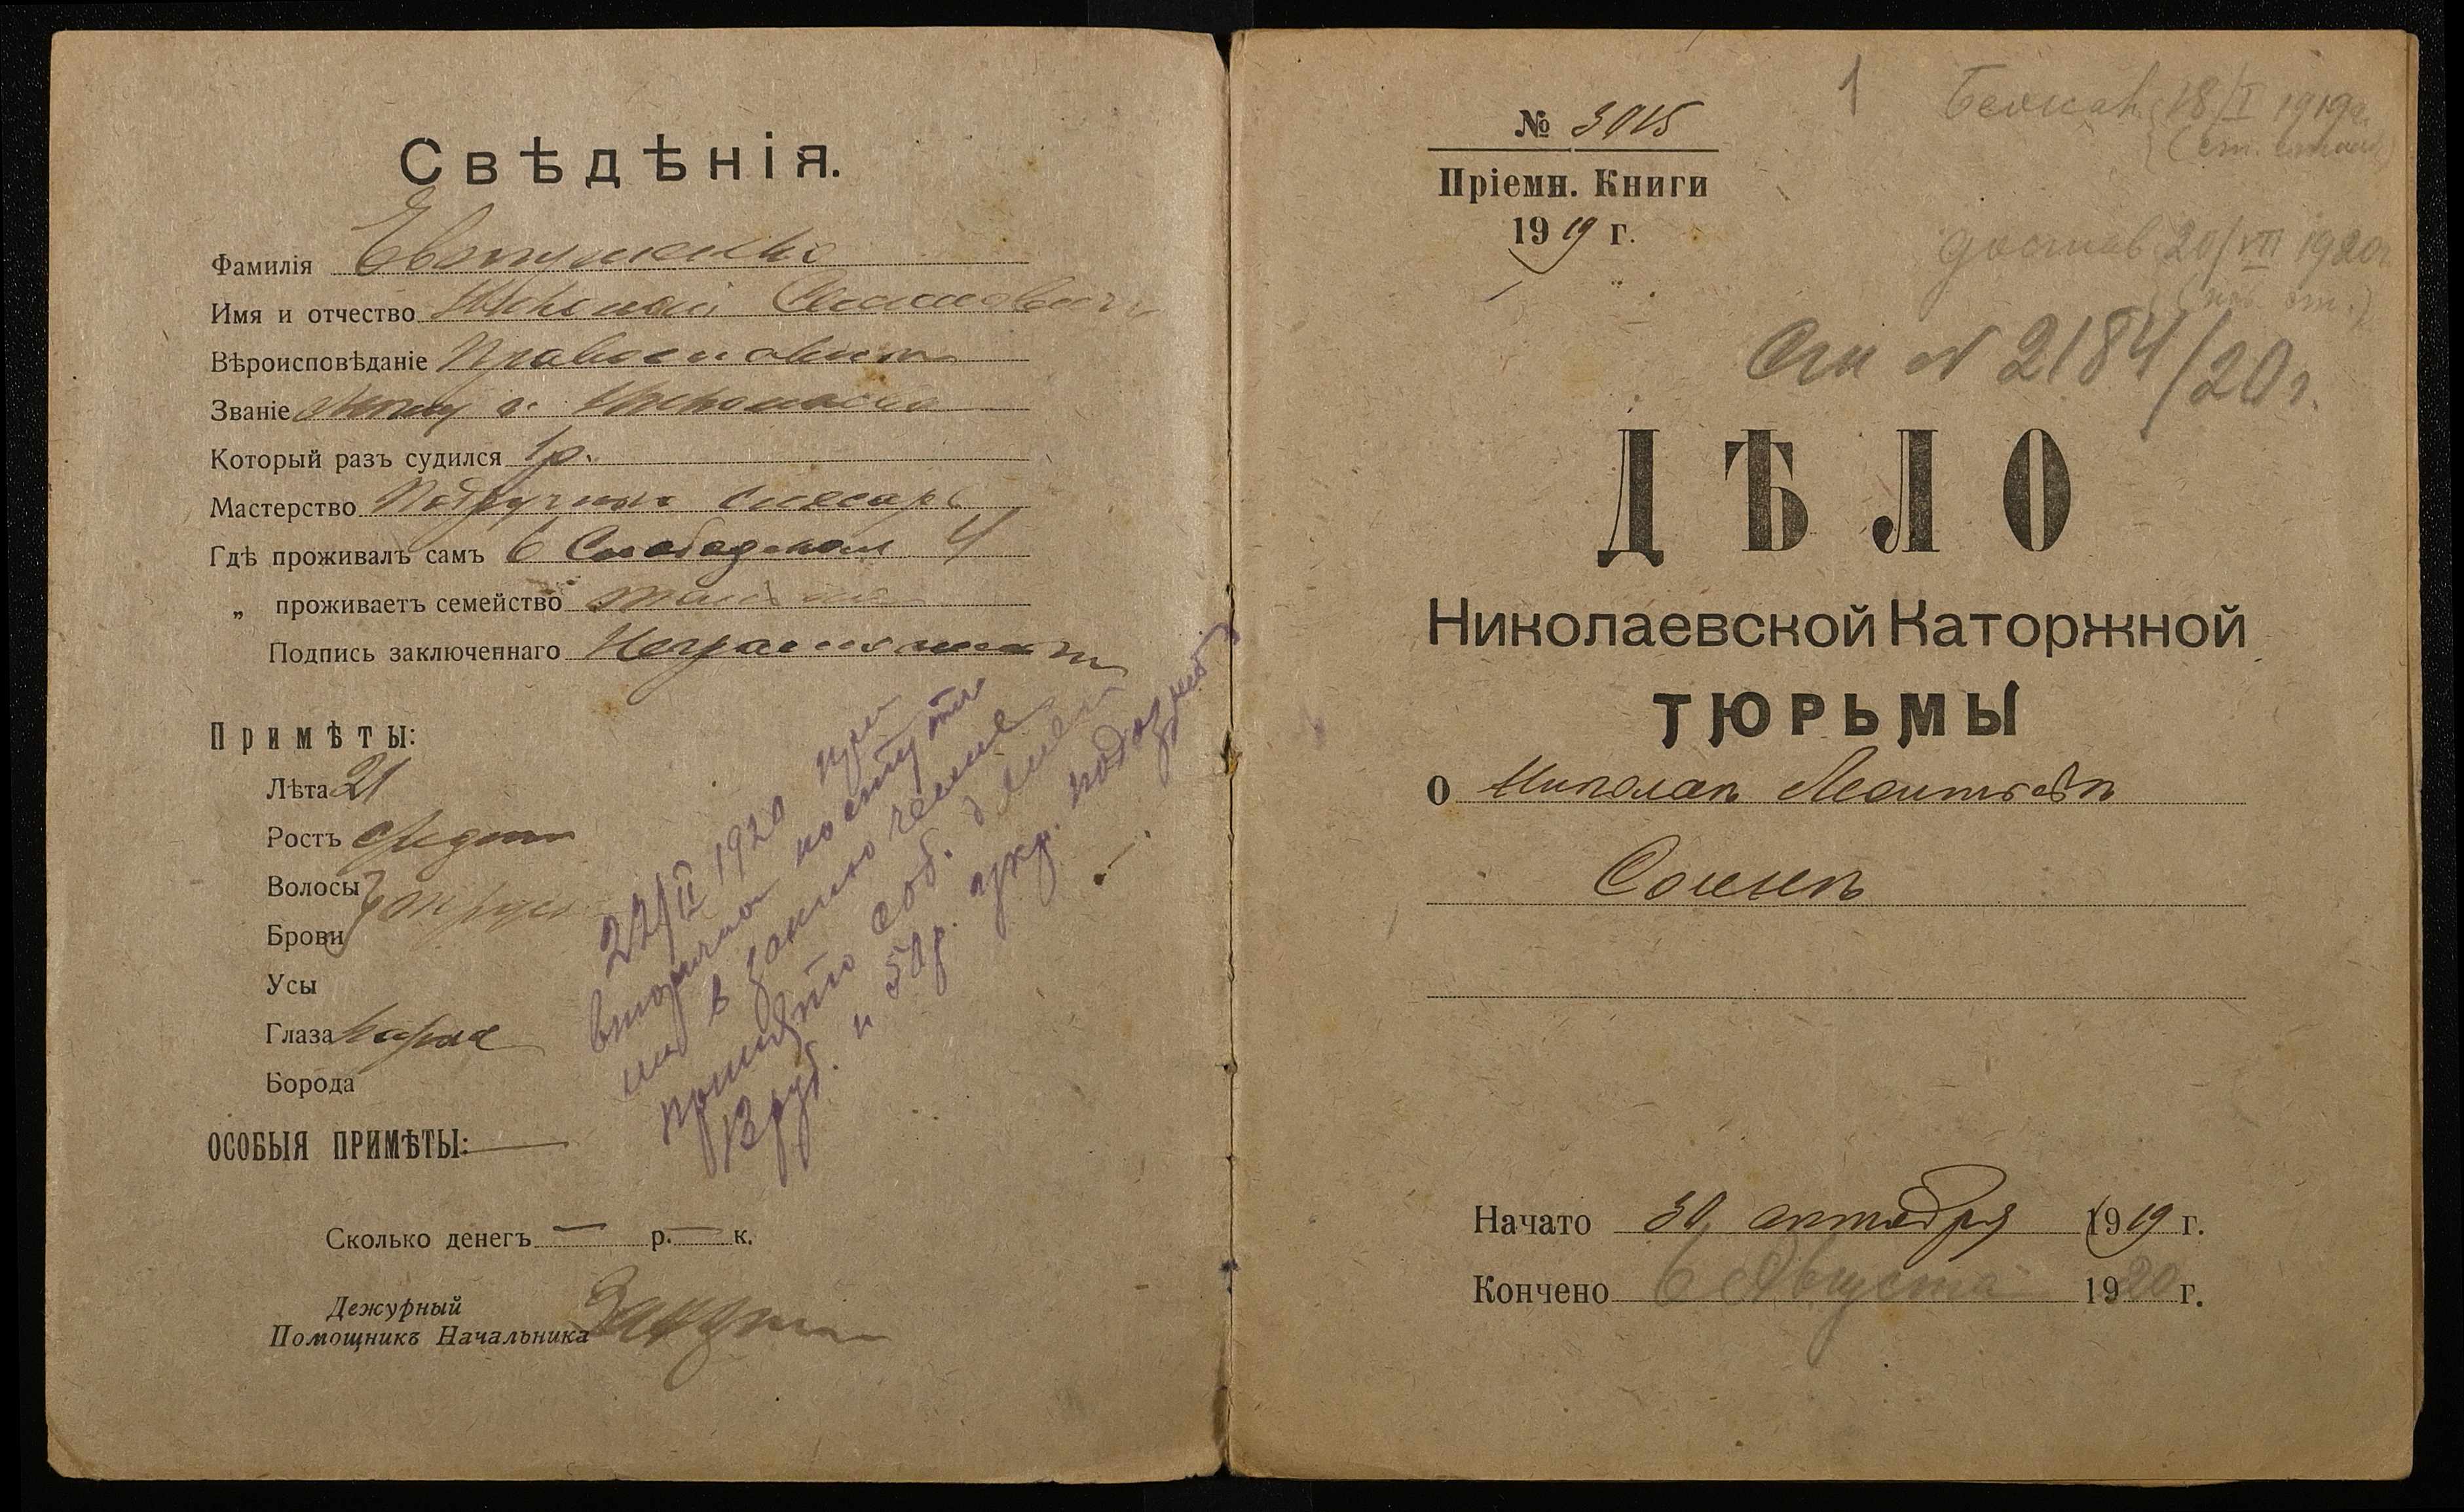 Свѣдѣнія.
Фамилія Евтушенко
Имя и отчество
Вѣроисповѣданіе Православн
Званіе
Который разъ судился 1 р.
Мастерство Подручный слесарь
Гдѣ проживалъ самъ 6 Слободская 4
„ проживаетъ семейство
Подпись заключеннаго Неграмотный
Примѣты:
Лѣта 21
Ростъ средн
Волосы
Брови
Усы
Глаза карие
Борода
ОСОБЫЯ ПРИМѢТЫ: —
Сколько денегъ — р. — к.
Дежурный
Помощникъ Начальника
22/II 1920 при
вторичном поступле
нии в заключение
принято соб. денег
13 руб. и 50 р. укр.
1
№ 3015
Пріемн. Книги
1919 г.
Бежал 18/I 1919 г.
достав. 20/VII 1920 г.
См N 2184/20 г.
ДѢЛО
Николаевской Каторжной
ТЮРЬМЫ
О Николае Леонтьеве
Сомике
Начато 30 октября 1919 г.
Кончено 6 Августа 1920 г.